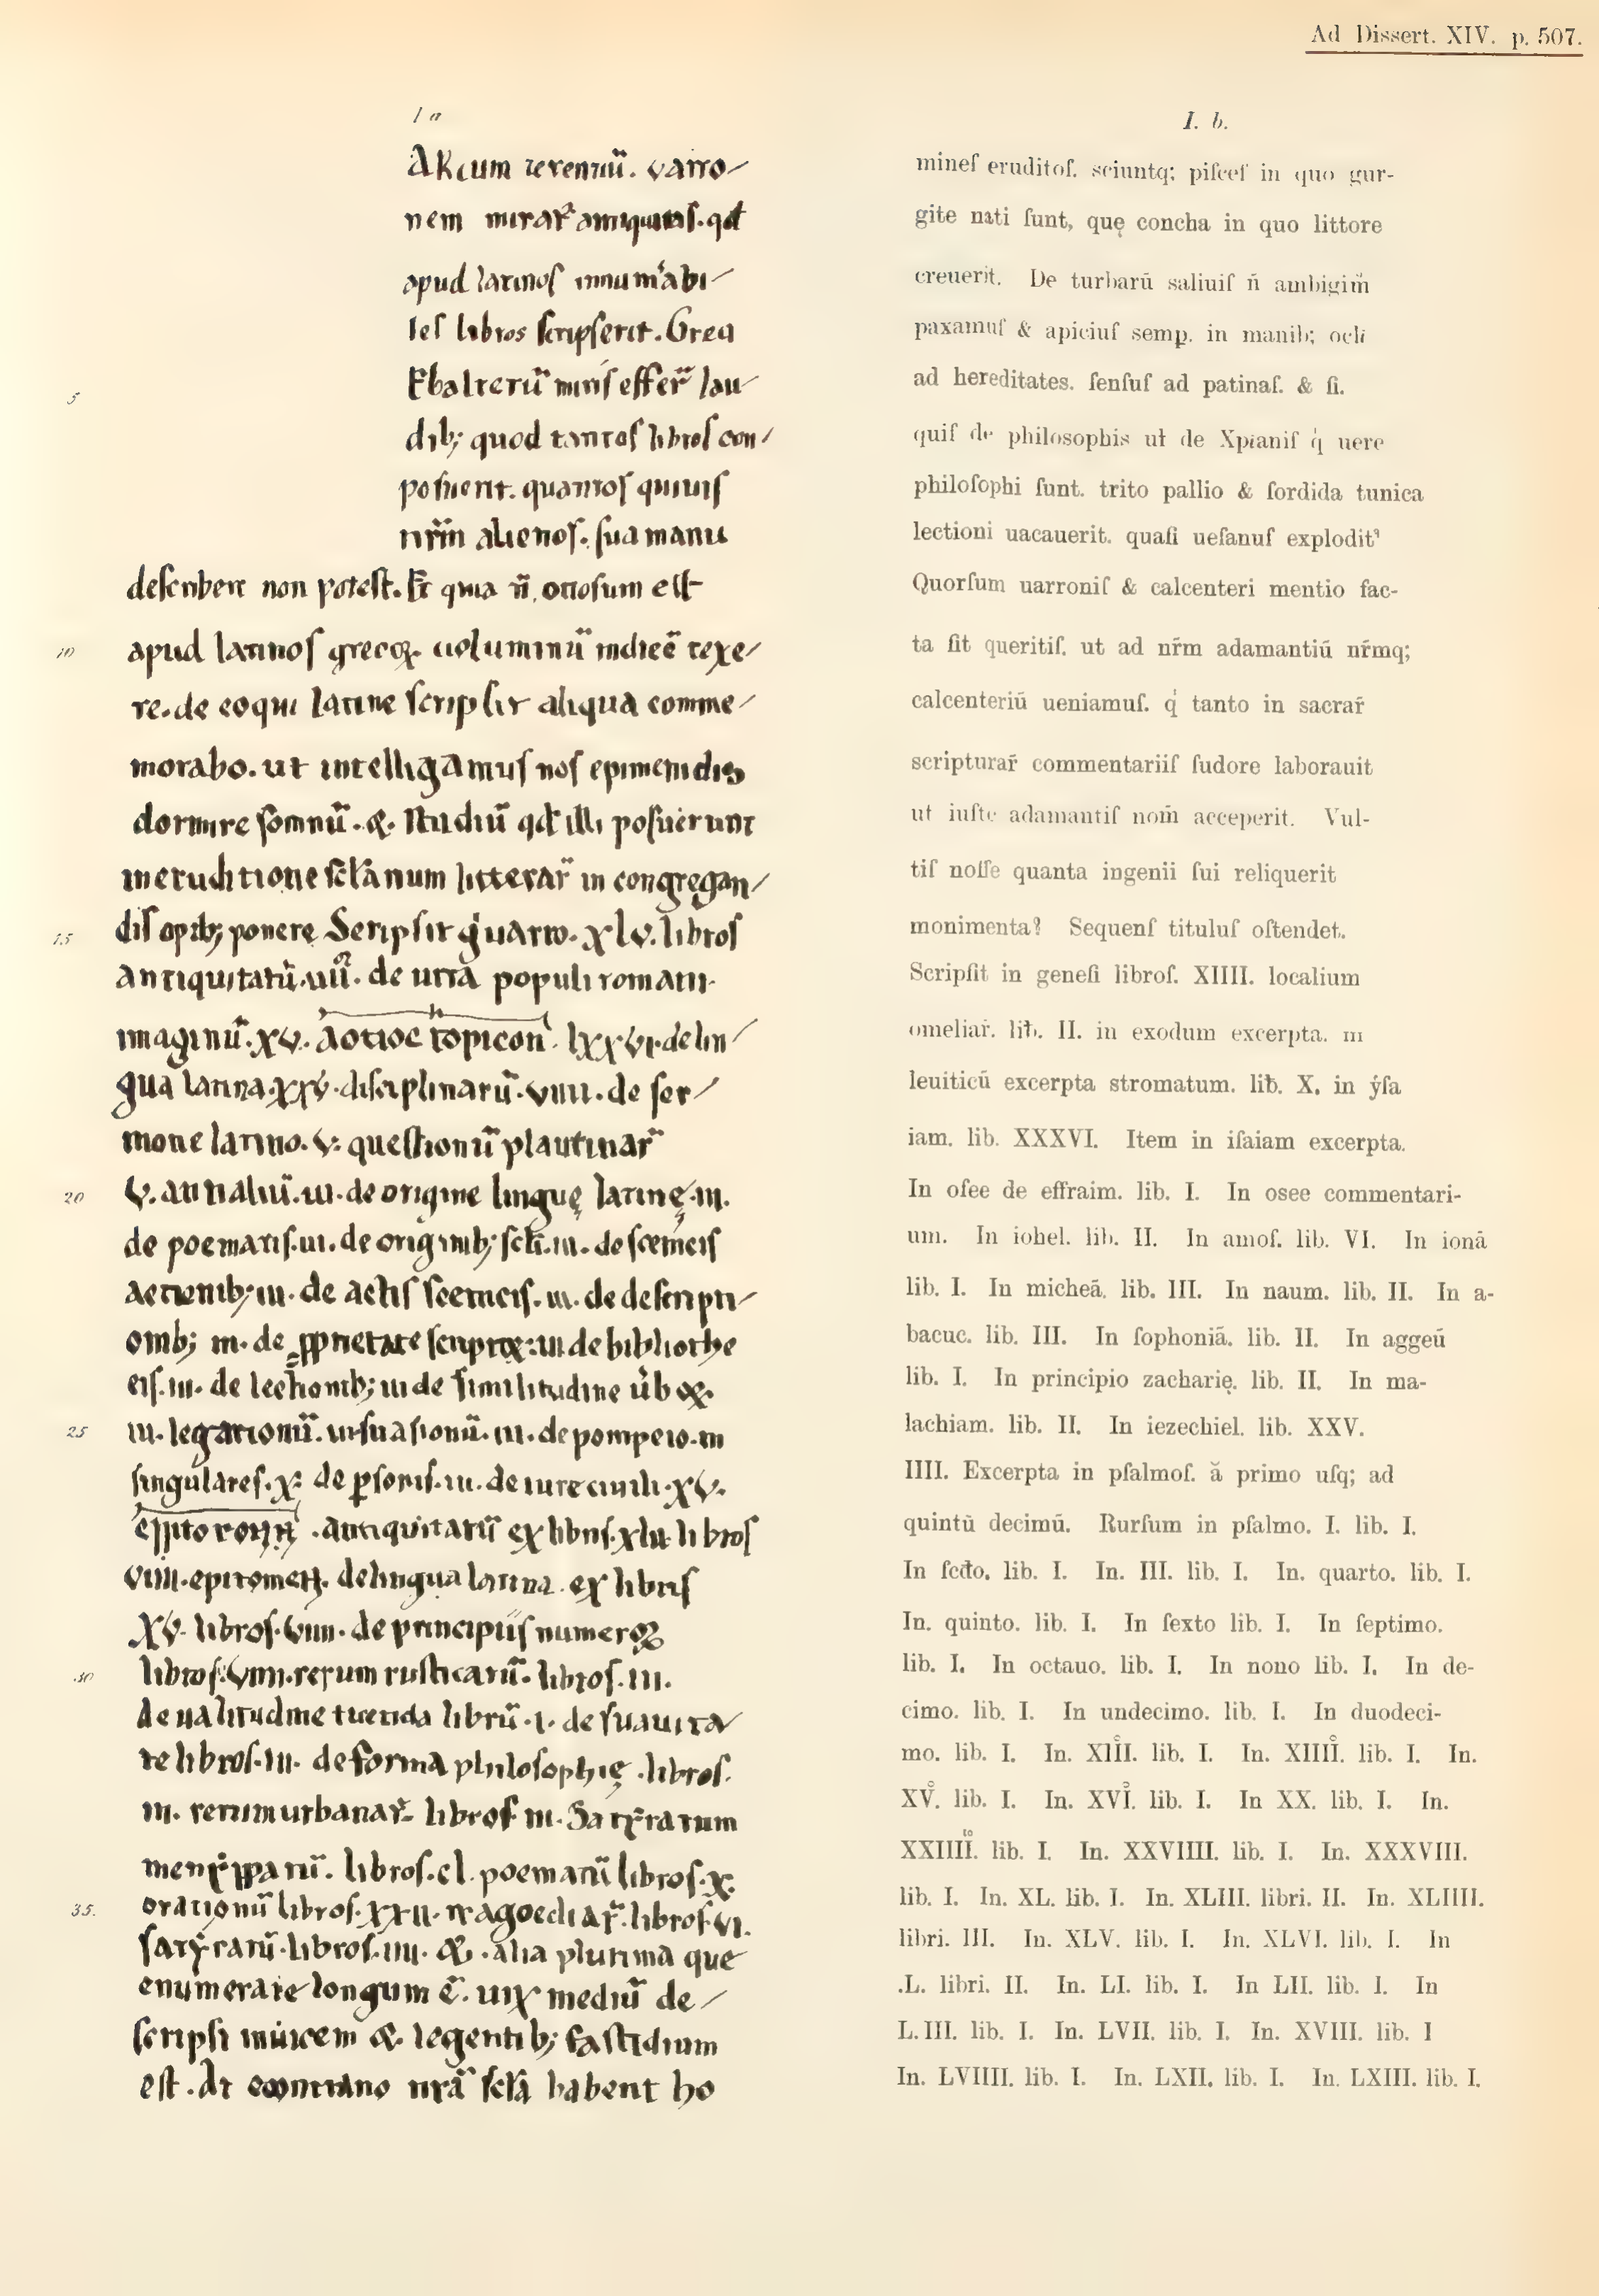 Ad Dissert. XIV. p. 507.
1 a
ARcum terentiũ. varro-
nem mirat̃ antiquitas. qđ
apud latinoſ innum̃abi-
leſ libros ſcripſerit. Greci
hunc miris effer̃ lau-
dib; quod tantoſ libroſ con-
poſuerit. quantoſ quiuis
nr̃m alienoſ. ſua manu
deſcribere non poteſt. Et quia ñ. otioſum eſt
apud latinoſ grecoꝝ. uoluminũ indicẽ texe-
re. de eo qui latine ſcripſit aliqua comme-
morabo. ut intelligamuſ noſ epimenidis
dormire ſomnũ. &. ſtudiũ qđ illi poſuerunt
in eruditione ſcl̃arium litterar̃ in congregan-
diſ opib; ponere. Scripſit g̊ uarro. xlv. libros
antiquitatũ. iiii̊. de uita populi romani.
imaginũ. xv. λοτιοc topicon. lxxvi. de lin-
gua latina. xxv. diſciplinarũ. viiii. de ſer-
mone latino. v. queſtionũ plautinar̃
v. annaliũ. iii. de origine linguę latinę. iii.
de poematiſ. iii. de originib; ſcẽ. iii. de ſcenicis
actionib; iii. de actiſ ſcenicis. iii. de deſcripti-
onib; iii. de ꝓprietate ſcriptoꝝ. iii de bibliothe
cis. iii. de lectionib; iii de ſimilitudine ůboꝝ.
iii. legationũ. iii. ſuaſionũ. iii. de pompeio. iii
ſingulareſ. x. de pſoniſ. iii. de iure ciuili. xv.
antiquitatũ ex libriſ. xlii. libros
viiii. epitomen. de lingua latina. ex libris
xv. libros. viiii. de principiis numeroꝝ
libroſ. viiii. rerum ruſticarũ. libroſ. iii.
de ualitudine tuenda librũ. i. de ſuauita
te libroſ. iii. de forma philoſophię. libroſ.
iii. rerum urbanar̃. libroſ. iii. Satẏrarum
menẏpparũ. libroſ. cl. poematũ libroſ. x.
orationũ libroſ. xxii. tragoediar̃. libroſ. vi.
ſatẏrarũ. libroſ. iiii. &. alia plurima que
enumerare longum ẽ. uix mediũ de-
ſcripſi indicem &. legentib; faſtidium
eſt. At econtrario nr̃a ſcl̃a habent ho
5
10
15
20
25
30
35.
I. b.
mineſ eruditoſ. sciuntq; piſceſ in quo gur-
gite nati ſunt, quę concha in quo littore
creuerit. De turbarũ saliuiſ ñ ambigim̃
paxamuſ & apiciuſ semp. in manib; ocli
ad hereditates. ſenſuſ ad patinaſ. & ſi.
quiſ de philosophis uƚ de Xpianiſ q̇ uere
philoſophi ſunt. trito pallio & ſordida tunica
lectioni uacauerit. quaſi ueſanuſ explodit̉
Quorſum uarroniſ & calcenteri mentio fac-
ta ſit queritiſ. ut ad nr̃m adamantiũ nr̃mq;
calcenteriũ ueniamuſ. q̇ tanto in sacrar̃
scripturar̃ commentariiſ ſudore laborauit
ut iuſte adamantiſ nom̃ acceperit. Vul-
tiſ noſſe quanta ingenii ſui reliquerit
monimenta? Sequenſ tituluſ oſtendet.
Scripſit in geneſi libroſ. XIIII. localium
omeliar̃. liƀ. II. in exodum excerpta. in
leuiticũ excerpta stromatum. liƀ. X. in ẏſa
iam. lib. XXXVI. Item in iſaiam excerpta.
In oſee de effraim. lib. I. In osee commentari-
um. In iohel. lib. II. In amoſ. lib. VI. In ionã
lib. I. In micheã. lib. III. In naum. lib. II. In a-
bacuc. lib. III. In ſophoniã. lib. II. In aggeũ
lib. I. In principio zacharię. lib. II. In ma-
lachiam. lib. II. In iezechiel. lib. XXV.
IIII. Excerpta in pſalmoſ. ă primo uſq; ad
quintũ decimũ. Rurſum in pſalmo. I. lib. I.
In ſcđo. lib. I. In. III. lib. I. In. quarto. lib. I.
In. quinto. lib. I. In ſexto lib. I. In ſeptimo.
lib. I. In octauo. lib. I. In nono lib. I. In de-
cimo. lib. I. In undecimo. lib. I. In duodeci-
mo. lib. I. In. XIII̊. lib. I. In. XIIII̊. lib. I. In.
XV̊. lib. I. In. XVI̊. lib. I. In XX. lib. I. In.
XXIIIIto. lib. I. In. XXVIIII. lib. I. In. XXXVIII.
lib. I. In. XL. lib. I. In. XLIII. libri. II. In. XLIIII.
libri. III. In. XLV. lib. I. In. XLVI. lib. I. In
.L. libri. II. In. LI. lib. I. In LII. lib. I. In
L.III. lib. I. In. LVII. lib. I. In. XVIII. lib. I
In. LVIIII. lib. I. In. LXII. lib. I. In. LXIII. lib. I.